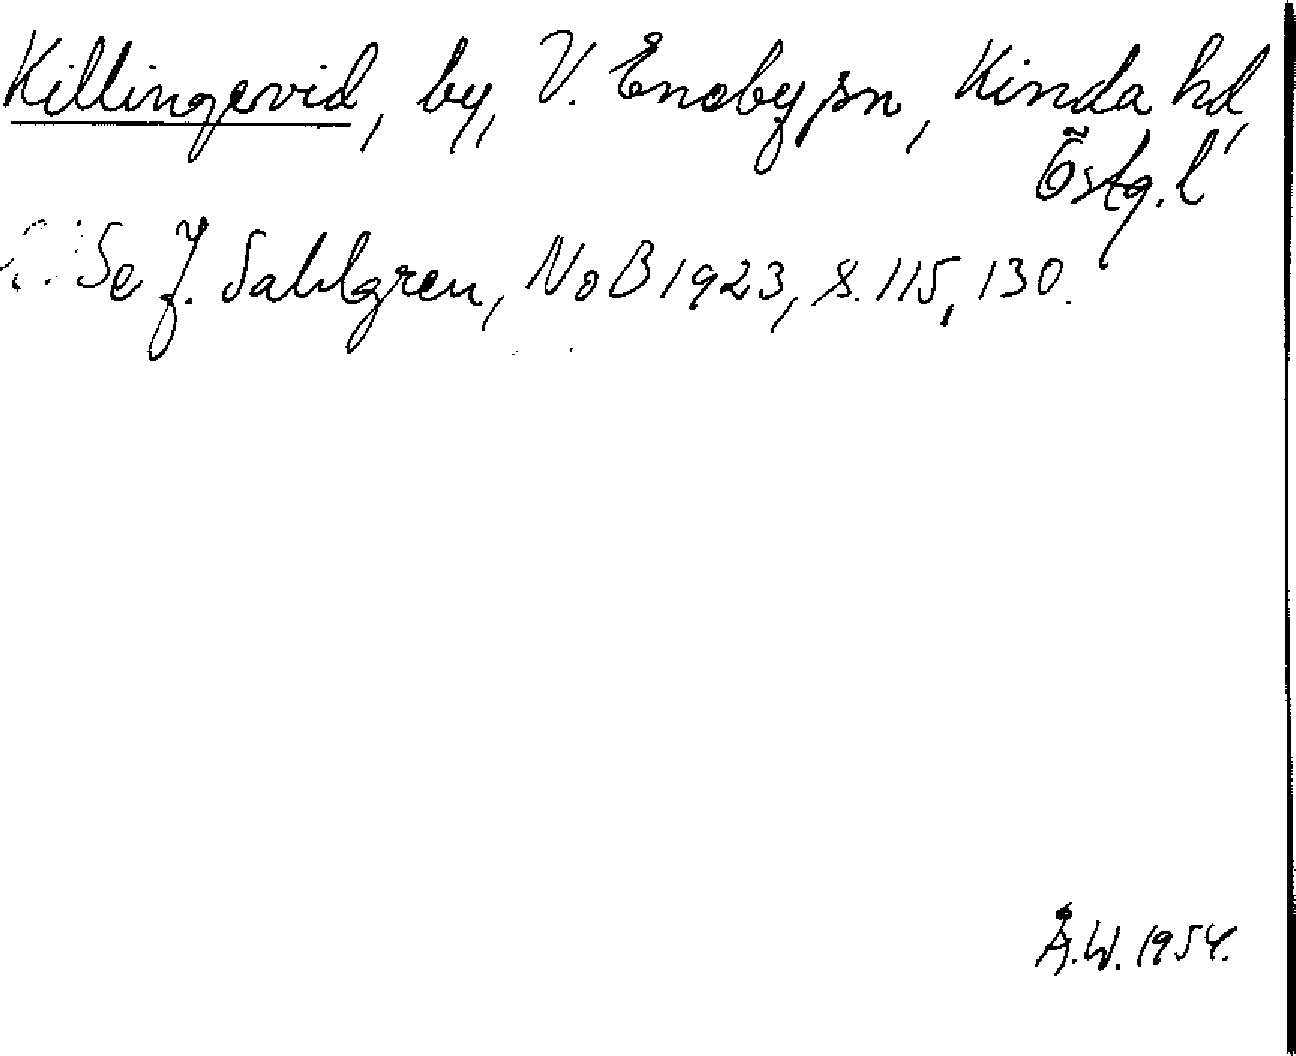 Killingevid, by, V. Eneby sn, Kinda hd,
Östg. l
Se J. Sahlgren, NoB 1923, s. 115, 130.
Å.W. 1954.